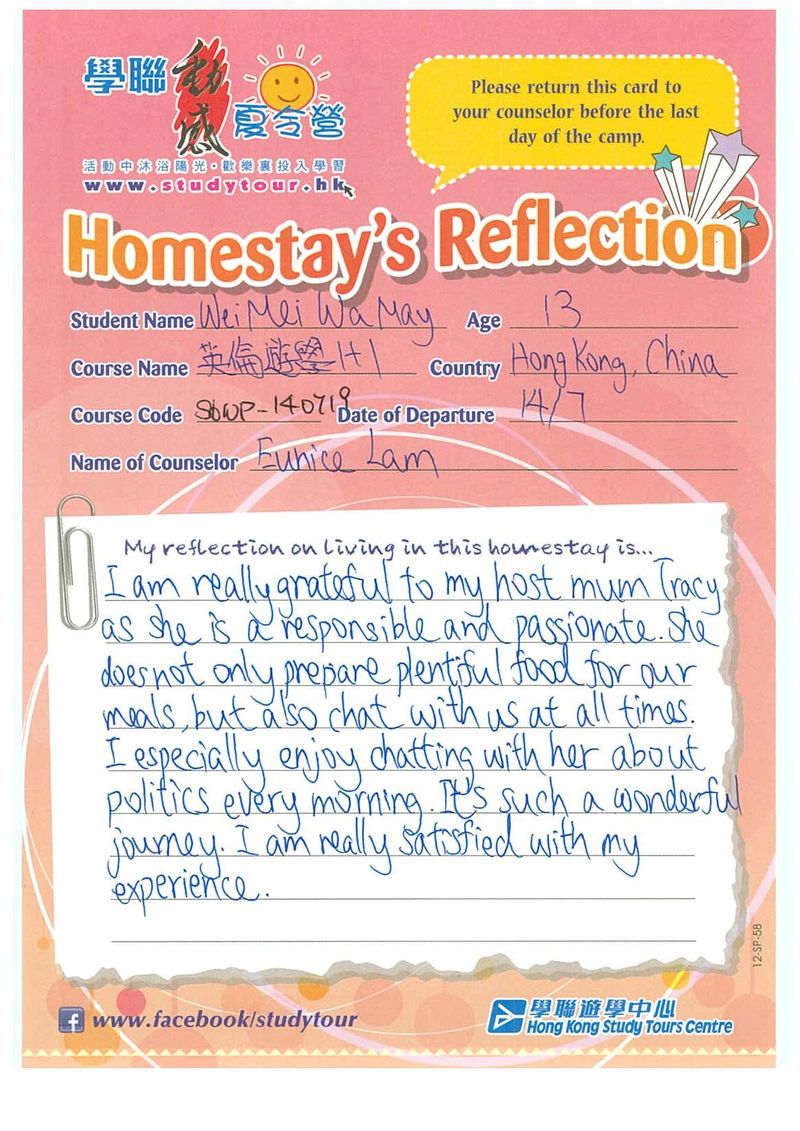 學聯 動感 夏令營
活動中沐浴陽光·歡樂裏投入學習
www.studytour.hk
Please return this card to
your counselor before the last
day of the camp.
Homestay's Reflection
Student Name Wei Mei Wa May Age 13
Course Name 英倫遊學1+1 Country Hong Kong, China
Course Code SBWP-140719 Date of Departure 14/7
Name of Counselor Eunice Lam
My reflection on living in this homestay is...
I am really grateful to my host mum Tracy
as she is a responsible and passionate. She
does not only prepare plentiful food for our
meals, but also chat with us at all times.
I especially enjoy chatting with her about
politics every morning. It's such a wonderful
journey. I am really satisfied with my
experience.
12-SP-58
f www.facebook/studytour
學聯遊學中心
Hong Kong Study Tours Centre